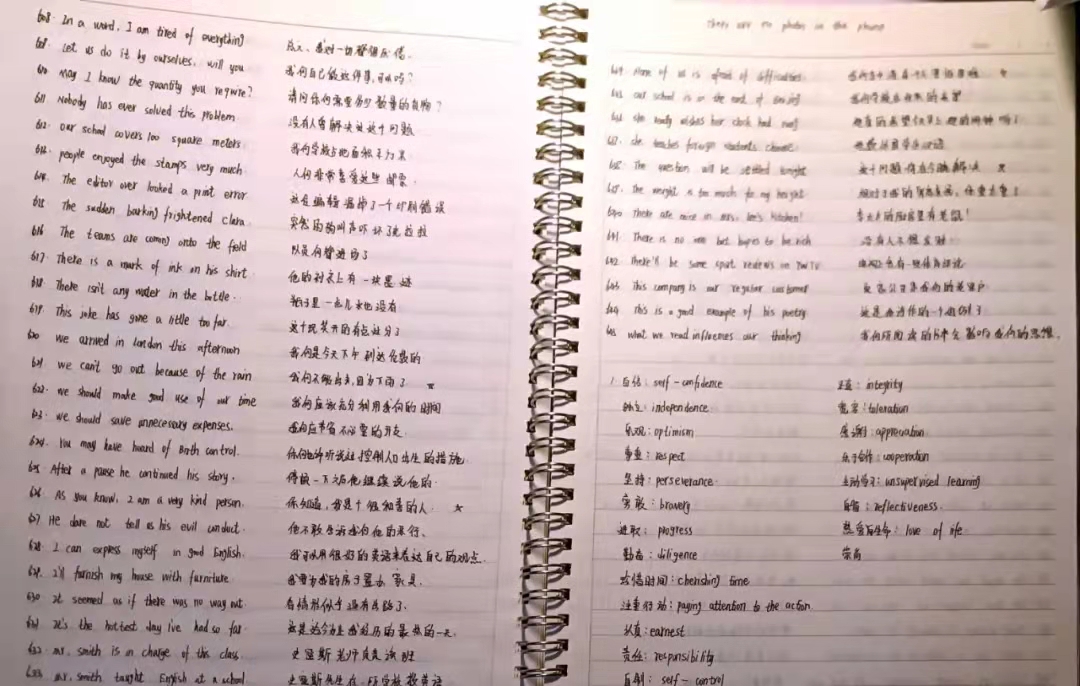 608. In a word, I am tired of everything 总之,我对一切都很厌倦.
609. Let us do it by ourselves, will you 我们自己做这件事,可以吗?
610. May I know the quantity you require? 请问你们需要多少数量的货物?
611. Nobody has ever solved this problem. 没有人曾解决过这个问题
612. our school covers 100 square meters. 我们学校占地面积
people enjoyed the stamps very much. 人们非常喜爱这些邮票.
The editor over looked a print error 这位编辑漏掉了一个印刷错误
615. The sudden barking frightened clara. 突然的狗叫声吓坏了克拉拉
616. The teams are coming onto the field 队员们都进场了
617. There is a mark of ink on his shirt. 他的衬衣上有一块墨迹
618. There isn't any water in the bottle. 瓶子里一点儿水也没有
619. This joke has gone a little too far. 这个玩笑开的有些过分了
620. we arrived in london this afternoon 我们是今天下午到达伦敦的
621. we can't go out because of the rain 我们不能出去,因为下雨了
622. we should make good use of our time 我们应该充分利用我们的时间
623. we should save unnecessary expenses. 我们应节省不必要的开支
624. You may have heard of Birth control. 你们也许听说过控制人口出生的措施
625. After a pause he continued his story. 停顿一下之后他继续说他的.
626. As you know, I am a very kind person. 你知道,我是个很和善的人.
627. He dare not tell us his evil conduct. 他不敢告诉我们他的恶行、
628. I can express myself in good English. 我可以用很好的英语来表达自己的观点.
629. I'll furnish my house with furniture. 我要为我的房子置办家具.
630. It seemed as if there was no way out. 看情形似乎没有出路了.
631. It's the hottest day I've had so far. 这是迄今为止我经历的最热的一天.
632. mr. smith is in charge of this class. 史密斯老师负责该班
633. mr. smith taught English at a school. 史密斯先生在一所学校教英语
There are no photos in the phone
None of us is afraid of difficulties. 我们当中没有一个人害怕困难.
our school is in the east of 我们学校在北京的东部
she really wishes her clock had rung 她真的希望
she teaches foreign students chinese. 她教外国学生汉语
The question will be settled tonight 这个问题将在今晚解决
The weight is too much for my height. 相对于我的身高来说,体重太重了
There are mice in mrs. lee's kitchen! 李太太的厨房里有老鼠!
There is no man but hopes to be rich 没有人不想发财
There'll be some sport reviews on TV 电视上会有一些体育评论
This company is our regular customer 这家公司是我们的老客户
This is a good example of his poetry 这是他诗作的一个好例子
what we read influences our thinking 我们所阅读的书本会影响我们的思想.
1. 自信: self-confidence 正直: integrity
独立: independence 宽容: toleration
乐观: optimism 感谢: appreciation
尊重: respect 乐于合作: cooperation
坚持: perseverance 主动学习: unsupervised learning
勇敢: bravery 自省: reflectiveness
进取: progress 热爱生命: love of life
勤奋: diligence 崇高
珍惜时间: cherishing time
注重行动: paying attention to the action.
认真: earnest
责任: responsibility
自制: self-control